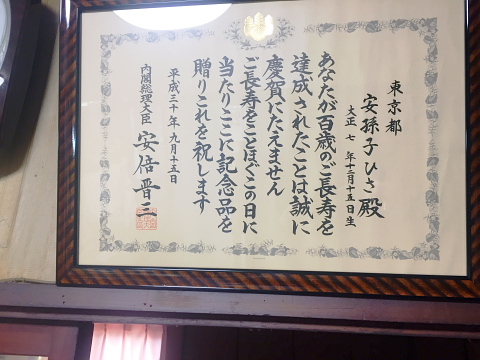 東京都
安孫子ひさ殿
大正七年十二月十五日生
あなたが百歳のご長寿を
達成されたことは誠に
慶賀にたえません
ご長寿をことほぐこの日に
当たりここに記念品を
贈りこれを祝します
平成三十年九月十五日
内閣総理大臣 安倍晋三